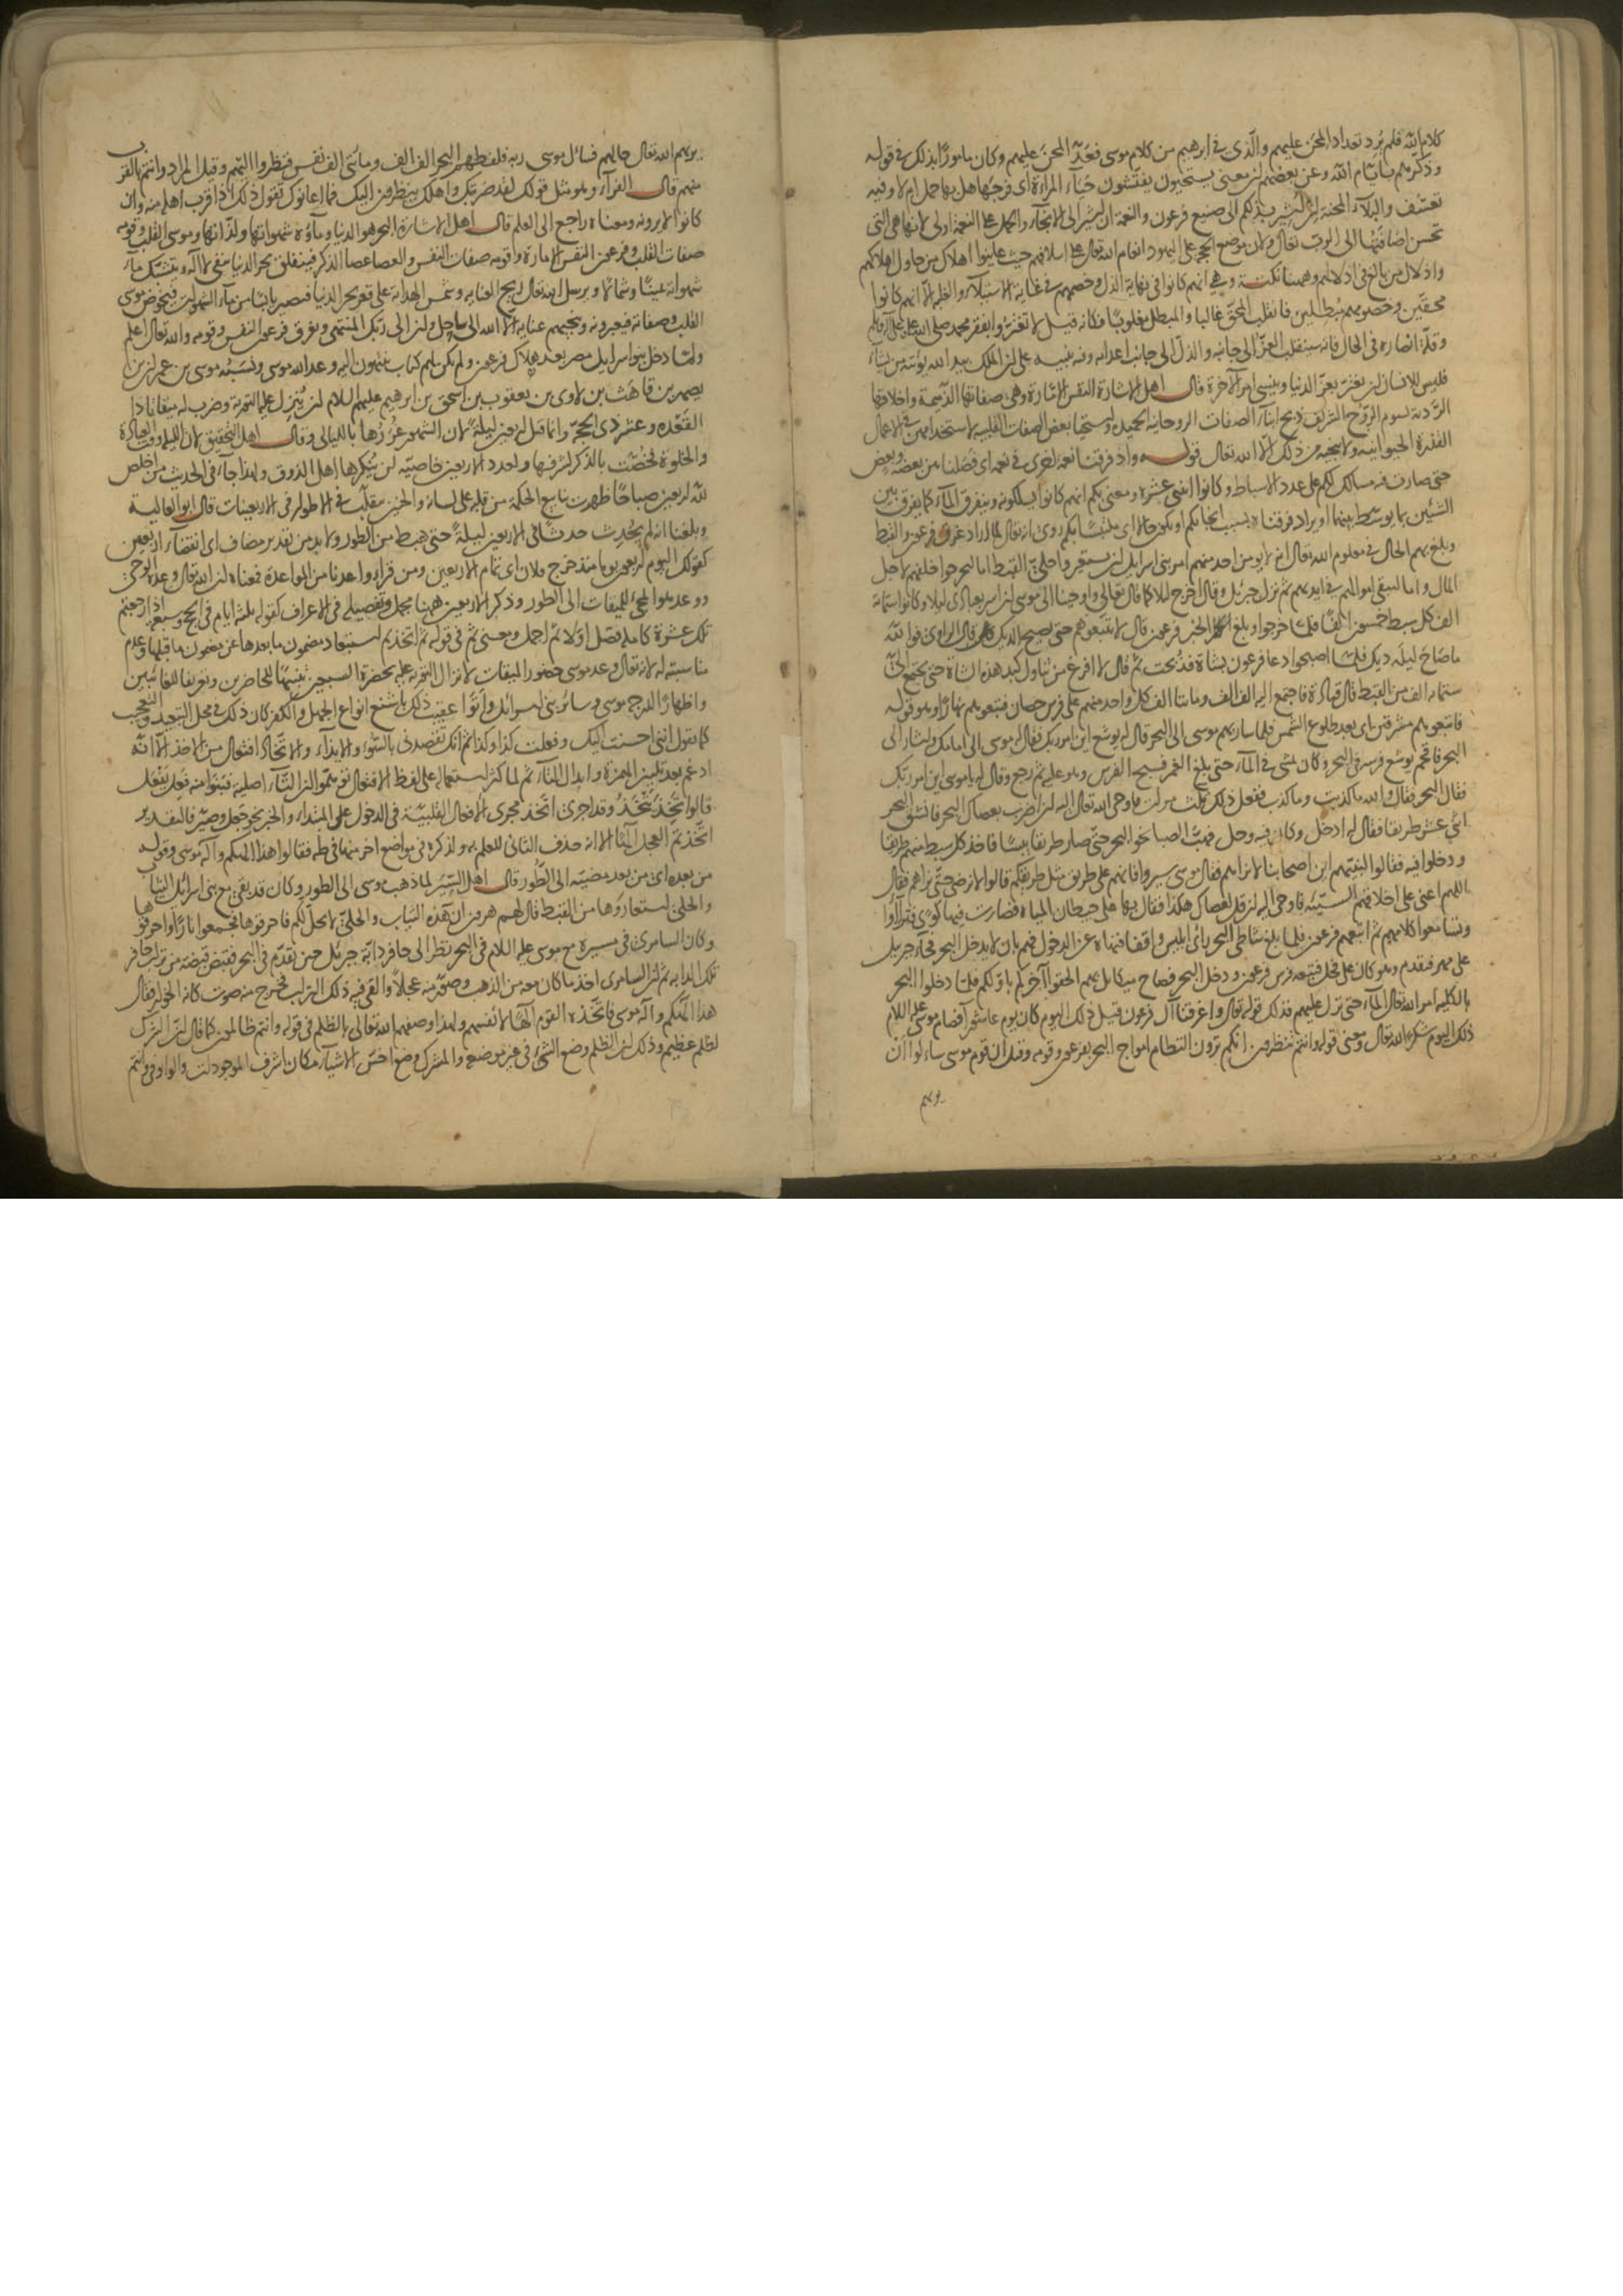 كلام الله فلم يرد تعداد المحن عليهم والذى فى ابرهيم من كلام موسى فعد المحن عليهم وكان مامورا بذلك فى قوله
وذكرهم بايام الله وعن بعضهم ان معنى يستحيون يفتشون حياء المراة اى فرجها هل بها حمل ام لا وفيه
تعسف والبلاء المحنة ان اشير بذلكم الى صنيع فرعون والنعمة ان اشير الى الانجاء والحمل على النعمة اولى لانها هى التى
تحسن اضافتها الى الرب تعالى ولان موضع الحجة على اليهود انعام الله تعالى على اسلافهم حيث عاينوا اهلاك من حاول اهلاكهم
واذلال من بالغ فى اذلالهم وههنا نكتة وهى انهم كانوا فى نهاية الذل وخصمهم فى غاية الاستيلاء والغلبة الا انهم كانوا
محقين وخصومهم مبطلين فانقلب المحق غالبا والمبطل مغلوبا فكانه قيل لا تغتروا بفقر محمد صلى الله عليه وسلم
وقلة انصاره فى الحال فانه سينقلب العز الى جانبه والذل الى جانب اعدائه وفيه تنبيه على ان الملك بيد الله يؤتيه من يشاء
فليس للانسان ان يغتر بعز الدنيا وينسى امر الآخرة قال اهل الاشارة النفس الامارة وهى صفاتها الذميمة واخلاقها
الردية تسوم الروح الشريف ذبح ابناء الصفات الروحانية الحميدة واستحياء بعض الصفات القلبية لاستخدامهن فى الاعمال
القذرة الحيوانية ولا ينجيه من ذلك الا الله تعالى قوله واذ فرقنا نعمة اخرى فى نعمة اى فصلنا من بعضه وبعض
حتى صارت فيه مسالك لكم على عدد الاسباط وكانوا اثنى عشرة ومعنى بكم انهم كانوا يسلكونه ويتفرق الماء كما يفرق بين
الشيئين بما يوسط بينهما او يراد فرقناه بسبب انجائكم او يكون حالا اى ملتبسا بكم روى انه تعالى لما اراد غرق فرعون والقبط
وبلغ بهم الحال فى معلوم الله تعالى انه لا يؤمن احد منهم امر بنى اسرايل ان يستعيروا حلى القبط اما ليخرجوا خلفهم لاجل
المال واما ليبقى اموالهم فى ايديهم ثم نزل جبرئيل وقال اخرج ليلا كما قال تعالى واوحينا الى موسى ان اسر بعبادى ليلا وكانوا ستمائة
الف كل سبط خمسون الفا فلما خرجوا وبلغ الخبر فرعون قال لا تتبعوهم حتى يصيح الديك قال الراوى فوالله
ما صاح ليلة ديك فلما اصبحوا دعا فرعون بشاة فذبحت ثم قال لا افرغ من تناول كبد هذه الشاة حتى يجتمع الى
ستمائة الف من القبط قال قتادة فاجتمع اليه الف الف ومائتا الف كل واحد منهم على فرس حصان فتبعوهم نهارا وهو قوله
فاتبعوهم مشرقين اى بعد طلوع الشمس فلما سار بهم موسى الى البحر قال له يوشع اين امرك ربك فقال له موسى الى امامك واشار الى
البحر فاقحم يوشع فرسه فى البحر وكان يمشى فى الماء حتى بلغ الغمر فسبح الفرس وهو عليه ثم رجع وقال له يا موسى اين امرك ربك
فقال البحر فقال والله ما كذبت وما كذبت ففعل ذلك ثلث مرات فاوحى الله تعالى اليه ان اضرب بعصاك البحر فانشق البحر
اثنى عشر طريقا فقال له ادخل وكان فيه وحل فهبت الصبا نحو البحر حتى صار طريقا يبسا فاخذ كل سبط منهم طريقا
ودخلوا فيه فقالوا لبعضهم اين اصحابنا لا نراهم فقال موسى سيروا فانهم على طريق مثل طريقكم قالوا لا نرضى حتى نراهم فقال
اللهم اعنى على اخلاقهم السيئة فاوحى اليه ان قل بعصاك هكذا فقال بها على حيطان المياه فصارت فيها كوى فتراأوا
وتسامعوا كلامهم ثم اتبعهم فرعون فلما بلغ شاطئ البحر راى ابليس واقفا فنهاه عن الدخول فهم بان لا يدخل البحر فجاء جبريل
على مهر فتقدم وهو كان على فحل فتبعه فرس فرعون ودخل البحر فصاح ميكائيل بهم الحقوا آخركم باولكم فلما دخلوا البحر
بالكلية امر الله تعالى الماء حتى نزل عليهم فذلك قوله تعالى واغرقنا آل فرعون قيل ذلك اليوم كان يوم عاشورآ فصام موسى عليه السلام
ذلك اليوم شكرا لله تعالى ومعنى قوله وانتم تنظرون انكم ترون التطام امواج البحر بفرعون وقومه وقيل ان قوم موسى سالوا ان
يريهم
يريهم الله تعالى حالهم فسال موسى ربه فلفظهم البحر الف الف ومائتى الف نفس فنظروا اليهم وقيل المراد وانتم بالقرب
منهم قال الفرآء وهو مثل قولك لقد ضربتك واهلك ينظرون اليك فما اعانوك تقول ذلك اذا قرب اهله منه وان
كانوا لا يرونه ومعناه راجع الى العلم قال اهل الاشارة البحر هو الدنيا وماؤه شهواتها ولذاتها وموسى القلب وقومه
صفات القلب وفرعون النفس الامارة وقومه صفات النفس والعصا عصا الذكر فينفلق بحر الدنيا بنفى لا اله ويتشبك ماء
شهواته يمينا وشمالا ويرسل الله تعالى ريح العناية وشمس الهداية على قعر بحر الدنيا فيصير يابسا من ماء الشهوات فيخوض موسى
القلب وصفاته فيعبرونه وينجيهم عناية الا الله الى ساحل وان الى ربك المنتهى ويغرق فرعون النفس وقومه والله تعالى اعلم
ولما دخل بنو اسرايل مصر بعد هلاك فرعون ولم يكن لهم كتاب ينتهون اليه وعد الله موسى ونسبته موسى بن عمران بن
يصهر بن قاهث بن لاوى بن يعقوب بن اسحق بن ابرهيم عليهم السلام ان ينزل عليه التورية وضرب له ميقاتا ذا
القعدة وعشر ذى الحجة وانما قيل اربعين ليلة لان الشهور غررها بالليالى وقال اهل التحقيق لان الليلة وقت العبادة
والخلوة فخصت بالذكر لشرفها ولعدد الاربعين خاصية لن ينكرها اهل الذوق ولهذا جاء فى الحديث من اخلص
لله اربعين صباحا ظهرت ينابيع الحكمة من قلبه على لسانه والجنين يتقلب فى الاطوار فى الاربعينات قال ابو العالية
وبلغنا انه لم يحدث حدثا فى الاربعين ليلة حتى هبط من الطور ولا بد من تقدير مضاف اى انقضاء اربعين
كقولك اليوم اربعون يوما منذ خرج فلان اى تمام الاربعين ومن قرا واعدنا من المواعدة فمعناه ان الله تعالى وعده الوحى
ووعد هو المجئ للميقات الى الطور وذكر الاربعين ههنا مجمل وتفصيله فى الاعراف كقوله ثلثة ايام فى الحج وسبعة اذا رجعتم
تلك عشرة كاملة فصل اولا ثم اجمل ومعنى ثم فى قوله ثم اتخذتم استبعاد مضمون ما بعدها عن مضمون ما قبلها وعدم
مناسبته له لانه تعالى وعد موسى حضور الميقات لانزال التورية عليه بحضرة السبعين تنبيها للحاضرين وتعريفا للغائبين
واظهارا لدرجة موسى وسائر بنى اسرائل واتوا عقيب ذلك باشنع انواع الجهل والكفر كان ذلك فى محل التبعيد والتعجب
كما تقول اننى احسنت اليك وفعلت كذا وكذا ثم انك تقصدنى بالسوء والايذاء والاتخاذ افتعال من الاخذ الا انه
ادغم بعد تليين الهمزة وابدال التاء ثم لما كثر استعماله على لفظ الافتعال توهموا ان التاء اصلية فبنوا منه فعل يفعل
قالوا تخذ يتخذ وقد اجرى اتخذ مجرى الافعال القلبية فى الدخول على المبتداء والخبر نحو جعل وصير فالتقدير
اتخذتم العجل الها الا انه حذف الثانى للعلم به ولذكره فى مواضع اخر منها فى طه فقالوا هذا الهكم واله موسى وقوله
من بعده اى من بعد مضيه الى الطور قال اهل السير لما ذهب موسى الى الطور وكان قد بقى مع بنى اسرائل الثياب
والحلى استعاروها من القبط قال لهم هرون ان هذه الثياب والحلى لا تحل لكم فاحرقوها فجمعوا نارا واحرقوها
وكان السامرى فى مسيره مع موسى عليه السلام فى البحر نظر الى حافر دابة جبرئل حين تقدم فى البحر فقبض قبضة من تراب حافر
تلك الدابة ثم ان السامرى اخذ ما كان معه من الذهب وصور منه عجلا والقى فيه ذلك التراب فخرج منه صوت كانه الخوار فقال
هذا الهكم واله موسى فاتخذه القوم الها لانفسهم ولهذا وصفهم الله تعالى بالظلم فى قوله وانتم ظالمون كما قال ان الشرك
لظلم عظيم وذلك ان الظلم وضع الشئ فى غير موضعه والمشرك وضع اخس الاشياء مكان اشرف الموجودات والواو فى وانتم